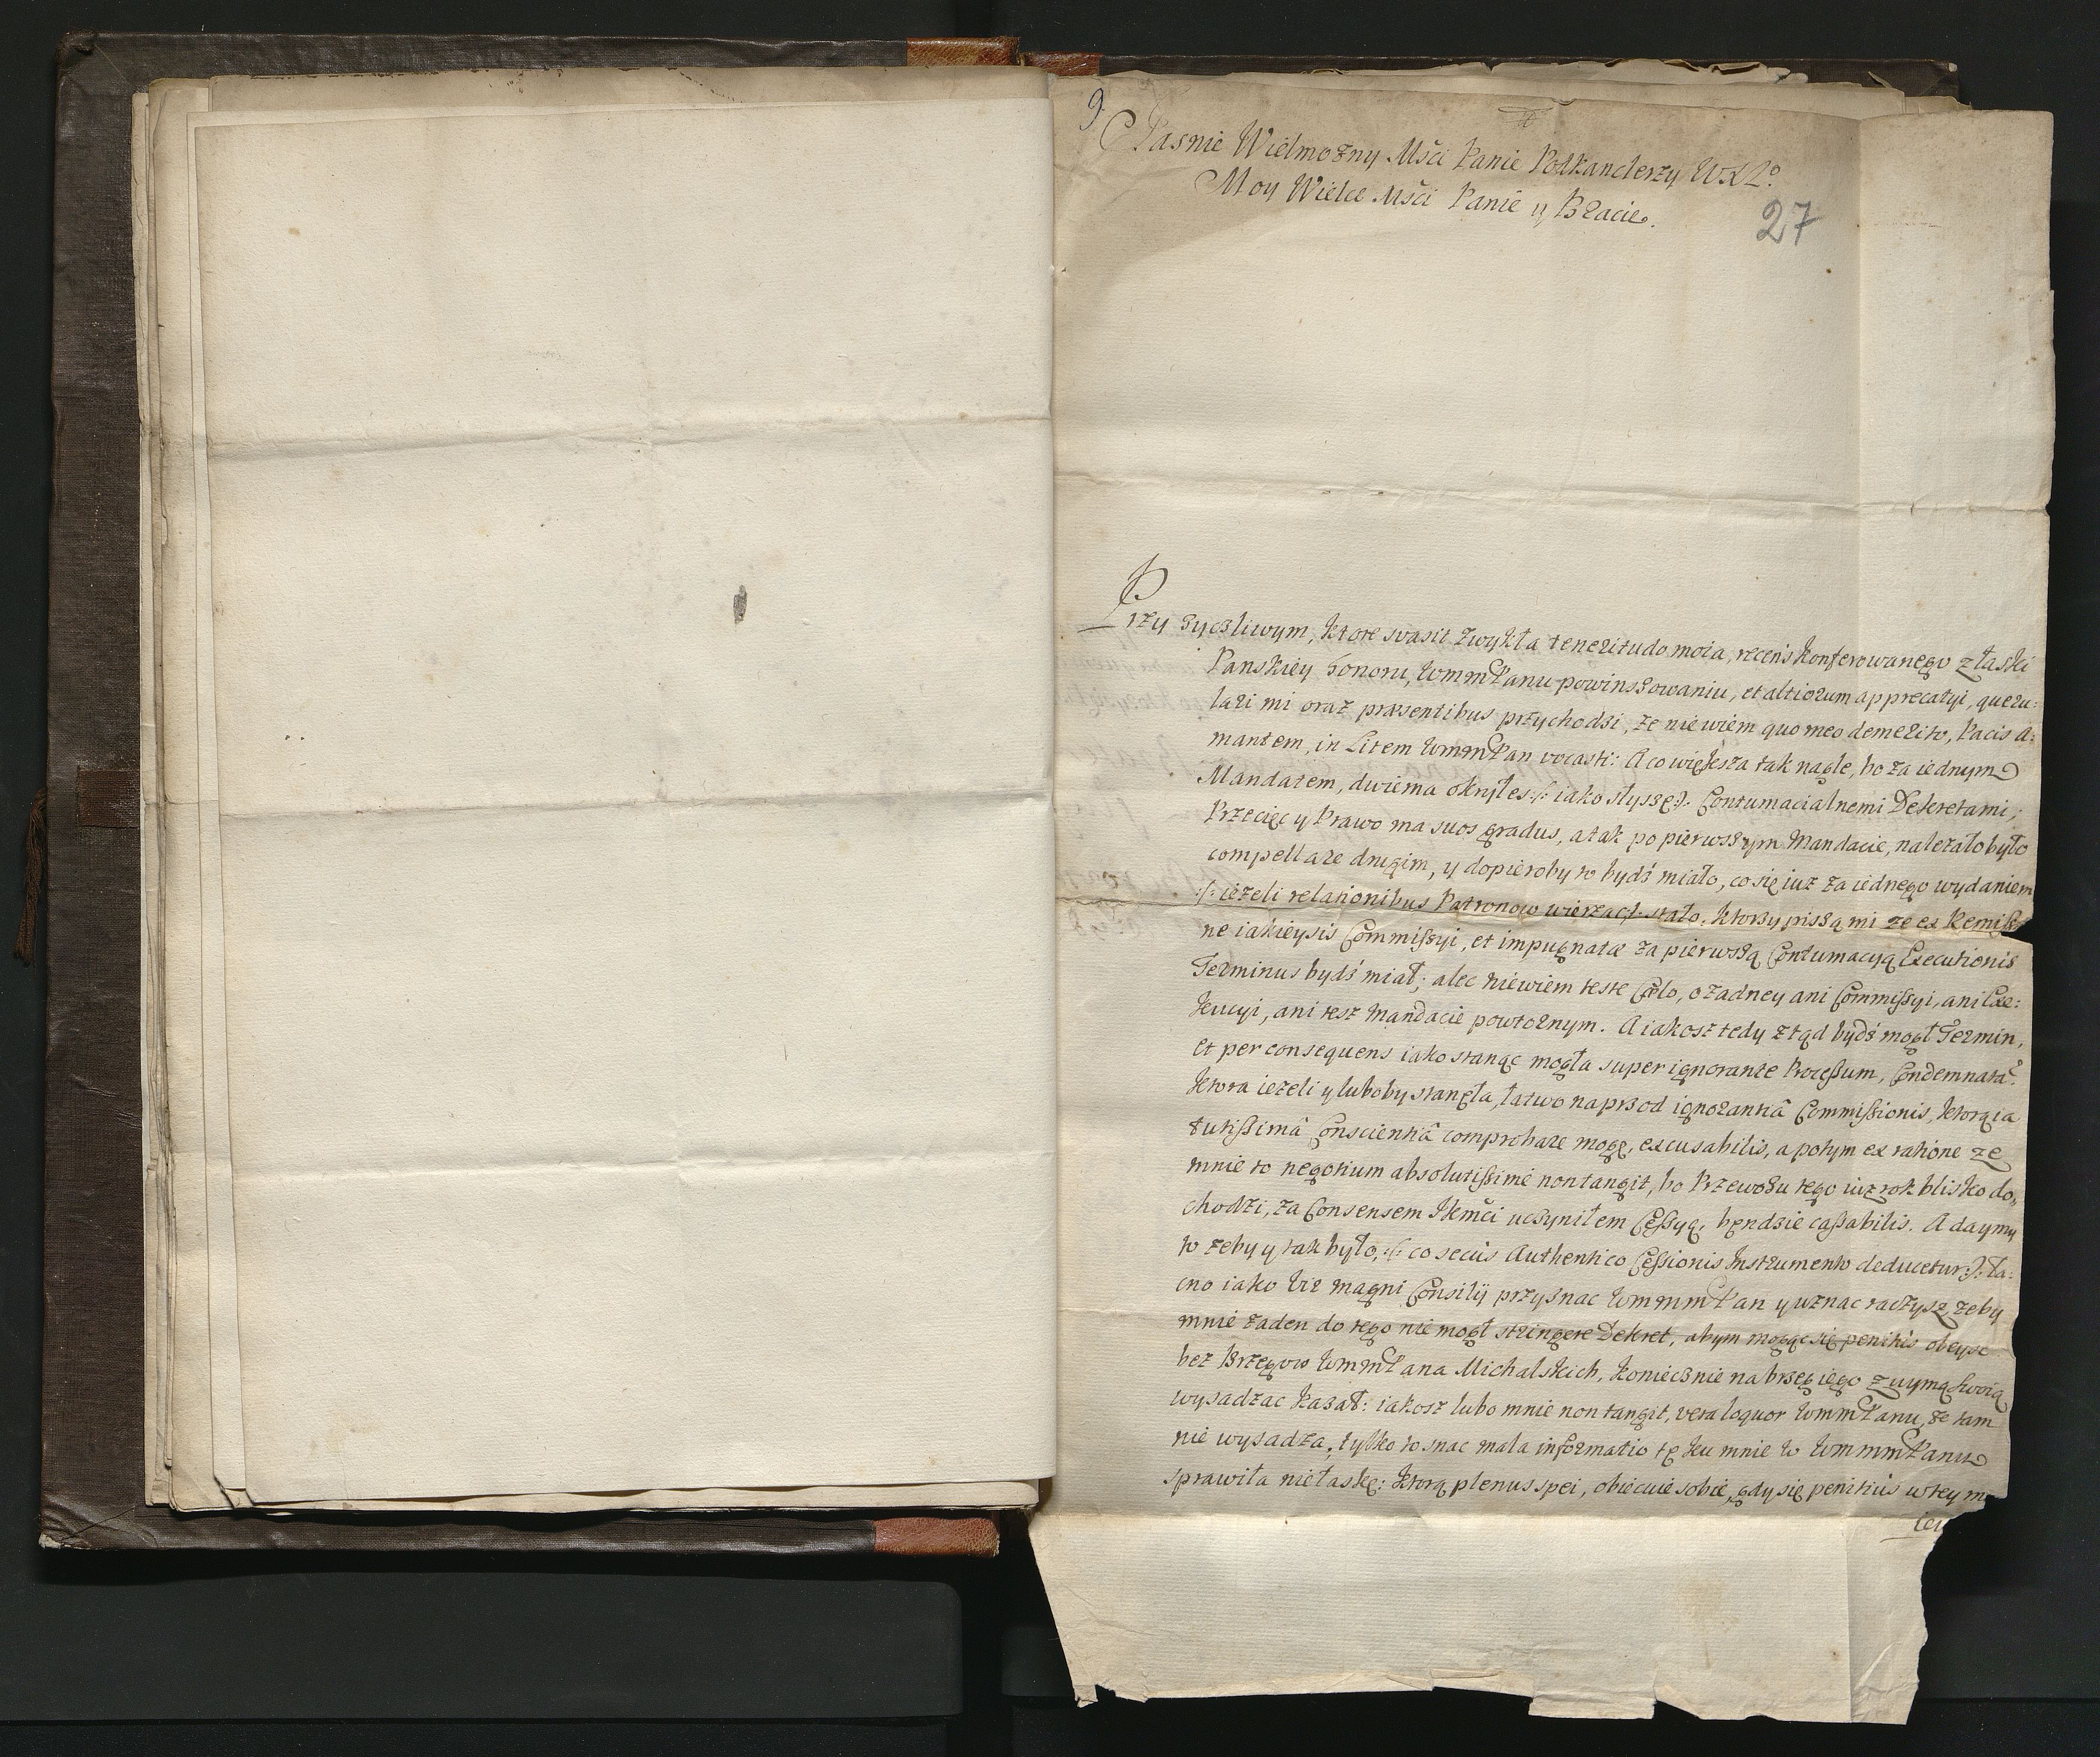 9.
Jasnie Wielmozny Msći Panie Podkanclerzy WXLº
Moy Wielce Msći Panie y Bracie.
27
Przy zyczliwym, ktore svasit zwykła teneritudo moia, recens konferowanego z łaski
Panskiey honoru, WmmPanu powinszowaniu, et altiorum apprecatyi, queru=
lari mi oraz præsentibus przychodzi, ze nie wiem quo meo demerito, Pacis a=
mantem, in Litem WmmPan vocasti: A co większa tak nagle, bo za iednym
Mandatem, dwiema okryłeś :/: iako słyszę :/: Contumacialnemi Dekretami;
Przecięc y Prawo ma suos gradus, a tak po pierwszym Mandacie, nalezało było
compellare drugim, y dopieroby to bydź miało, co się iuz za iednego wydaniem
:/: iezeli relationibus Patronow wierzać :/: stało. Ktorzy piszą mi ze ex Remissio
ne iakieysis Commissyi, et impugnatæ za pierwszą Contumacyą Executionis
Terminus bydź miał; alec niewiem teste Cœlo, o zadney ani Commissyi, ani Exe=
kucyi, ani tesz Mandacie powtornym. A iakosz tedy ztąd bydź mogł Termin,
et per consequens iako stanąc mogła super ignorante Processum, Condemnata?
Ktora iezeli y luboby stanęła, łatwo naprzod ignorantiâ Commissionis, ktorą ia
tutissimâ Conscientiâ comprobare mogę, excusabilis, a potym ex ratione ze
mnie to negotium absolutissime non tangit, bo Przewozu tego iuz rok blisko do=
chodzi, za Consensem JKmći uczyniłem Cessyą, bęndzie cassabilis. A daymy
to zeby y tak było, :/: co secus Authentico Cessionis Instrumento deducetur :/: ła=
cno iako Vir magni Consilij przyznac WmmmPan y uznac raczysz, zeby
mnie zaden do tego nie mogł stringere Dekret, abym mogąc się penitus obeysc
bez Brzegow WmmPana Michalskich, koniecznie na brzeg iego z uymą swoią
wysadzac kazał: iakosz lubo mnie non tangit, vera loquor WmmPanu, ze tam
nie wysadza, tylko to snac mala informatio tę ku mnie w WmmmPanu
sprawiła niełaskę: ktorą plenus spei, obiecuie sobie, gdy się penitius w tey m